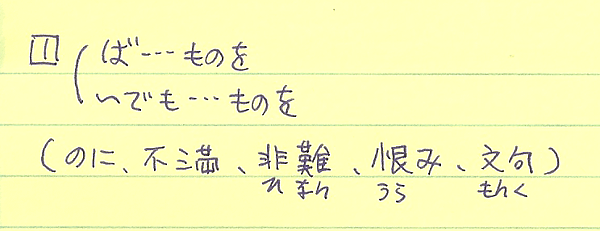 1 ば…ものを
いでも…ものを
(のに、不満、非難、恨み、文句)
ひ なん うら もんく